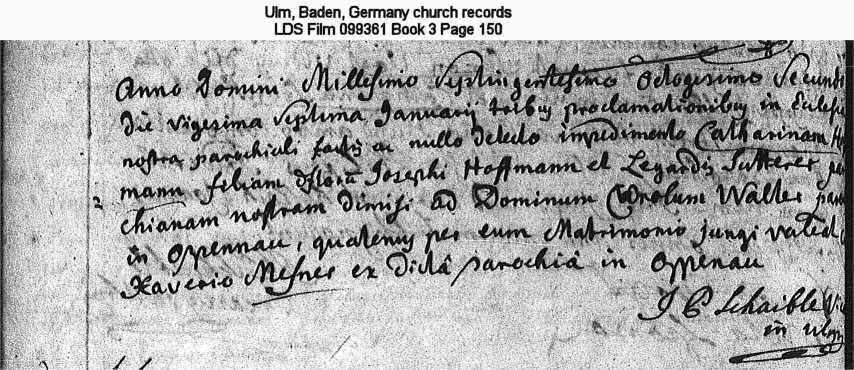 Ulm, Baden, Germany church records
LDS Film 099361 Book 3 Page 150
Anno Domini Millesimo Septingentesimo Octogesimo Secund
die vigesima Septima Januarij tribus proclamationibus in Eclesi
nostra parochiali factis ac nullo detecto impedimento Catharinam H
mann filiam Josephi Hoffmann et Legardis Sutterer
2 chianam nostram dimisi ad Dominum Carolum Walter par
in Oppennau, quatenus per eum Matrimonio jungi valeat
Xaverio Mesner ex dictâ parochiâ in Oppenau
J B Schaible Vic
in Ulm